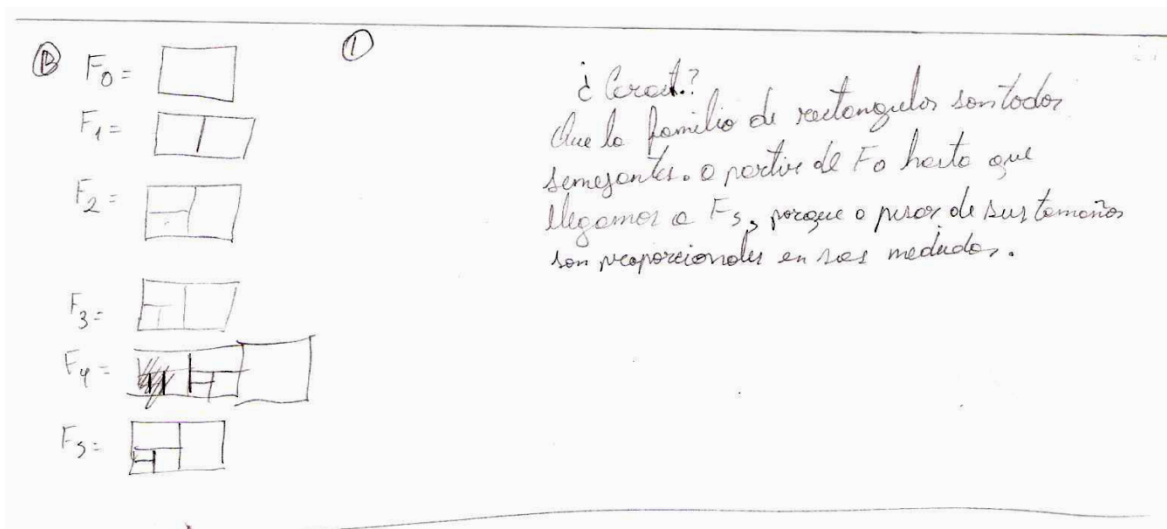 B
F0 =
F1 =
F2 =
F3 =
F4 =
F5 =
1
¿Caract.?
Que la familia de rectangulos son todos
semejantes. a partir de F0 hasta que
llegamos a F5, porque a pesar de sus tamaños
son proporcionales en sus medidas.